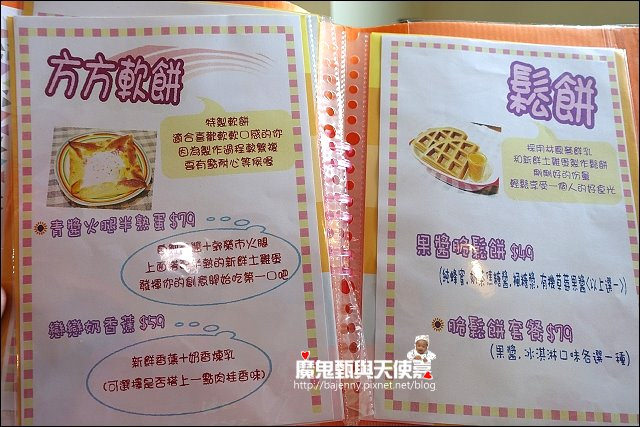 方方軟餅
特製軟餅
適合喜歡軟軟口感的你
因為製作過程軟複雜
要有點耐心等候喔
青醬火腿半熟蛋$79
火腿
上面 半熟的新鮮土雞蛋
發揮你的創意開始吃第一口吧
戀戀奶香蕉$59
新鮮香蕉+奶香煉乳
(可選擇是否搭上一點肉桂香味)
鬆餅
採用 鮮乳
和新鮮土雞蛋製作鬆餅
剛剛好的份量
輕鬆享受一個人的好食光
果醬脆鬆餅 $49
(純蜂蜜. 焦糖醬. 楓糖漿. 有機草莓果醬(以上選一)
脆鬆餅套餐 $79
(果醬. 冰淇淋口味各選一種)
魔鬼甄與天使嘉
http://bajenny.pixnet.net/blog